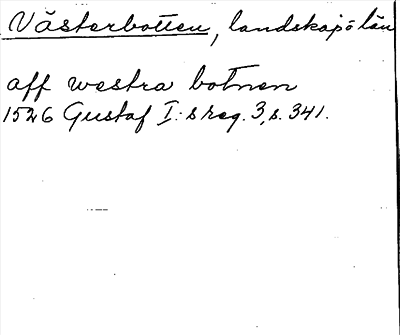 Västerbotten, landskap o län
aff westra botnen
1526 Gustaf I:s reg. 3, s. 341.